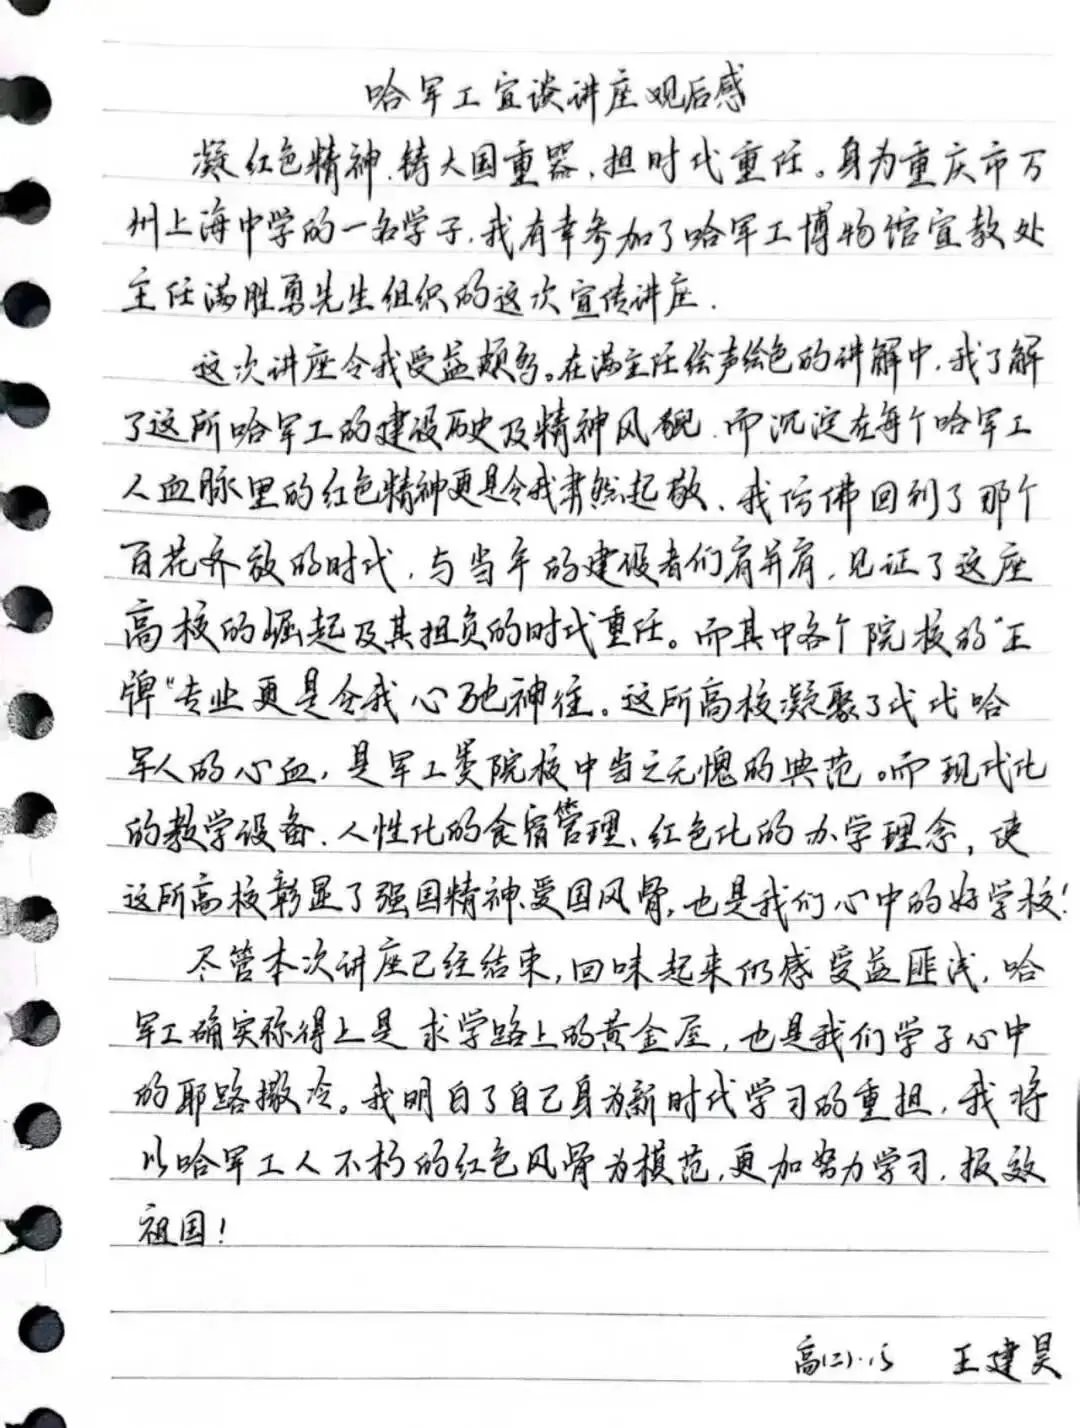 哈军工宣谈讲座观后感
凝红色精神.铸大国重器、担时代重任。身为重庆市万
州上海中学的一名学子,我有幸参加了哈军工博物馆宣教处
主任满胜勇先生组织的这次宣传讲座.
这次讲座令我受益颇多。在满主任绘声绘色的讲解中,我了解
了这所哈军工的建设历史及精神风貌.而沉淀在每个哈军工
人血脉里的红色精神更是令我肃然起敬、我仿佛回到了那个
百花齐放的时代,与当年的建设者们肩并肩,见证了这座
高校的崛起及其担负的时代重任。而其中各个院校的“王
牌“专业更是令我心驰神往。这所高校凝聚了代代哈
军人的心血,是军工类院校中当之无愧的典范。而现代化
的教学设备、人性化的食宿管理、红色化的办学理念,使
这所高校彰显了强国精神、爱国风骨,也是我们心中的好学校!
尽管本次讲座已经结束,回味起来仍感受益匪浅,哈
军工确实称得上是求学路上的黄金屋,也是我们学子心中
的耶路撒冷。我明白了自己身为新时代学习的重担,我将
以哈军工人不朽的红色风骨为模范,更加努力学习,报效
祖国!
高(二)·15 王建昊